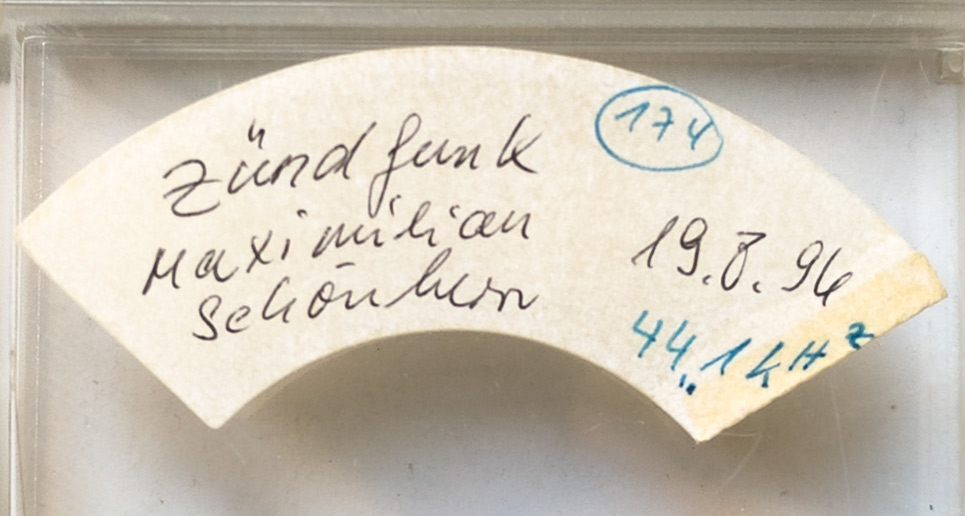 Zündfunk
Maximilian
Schönherr
174
19.8.96
44,1 kHz